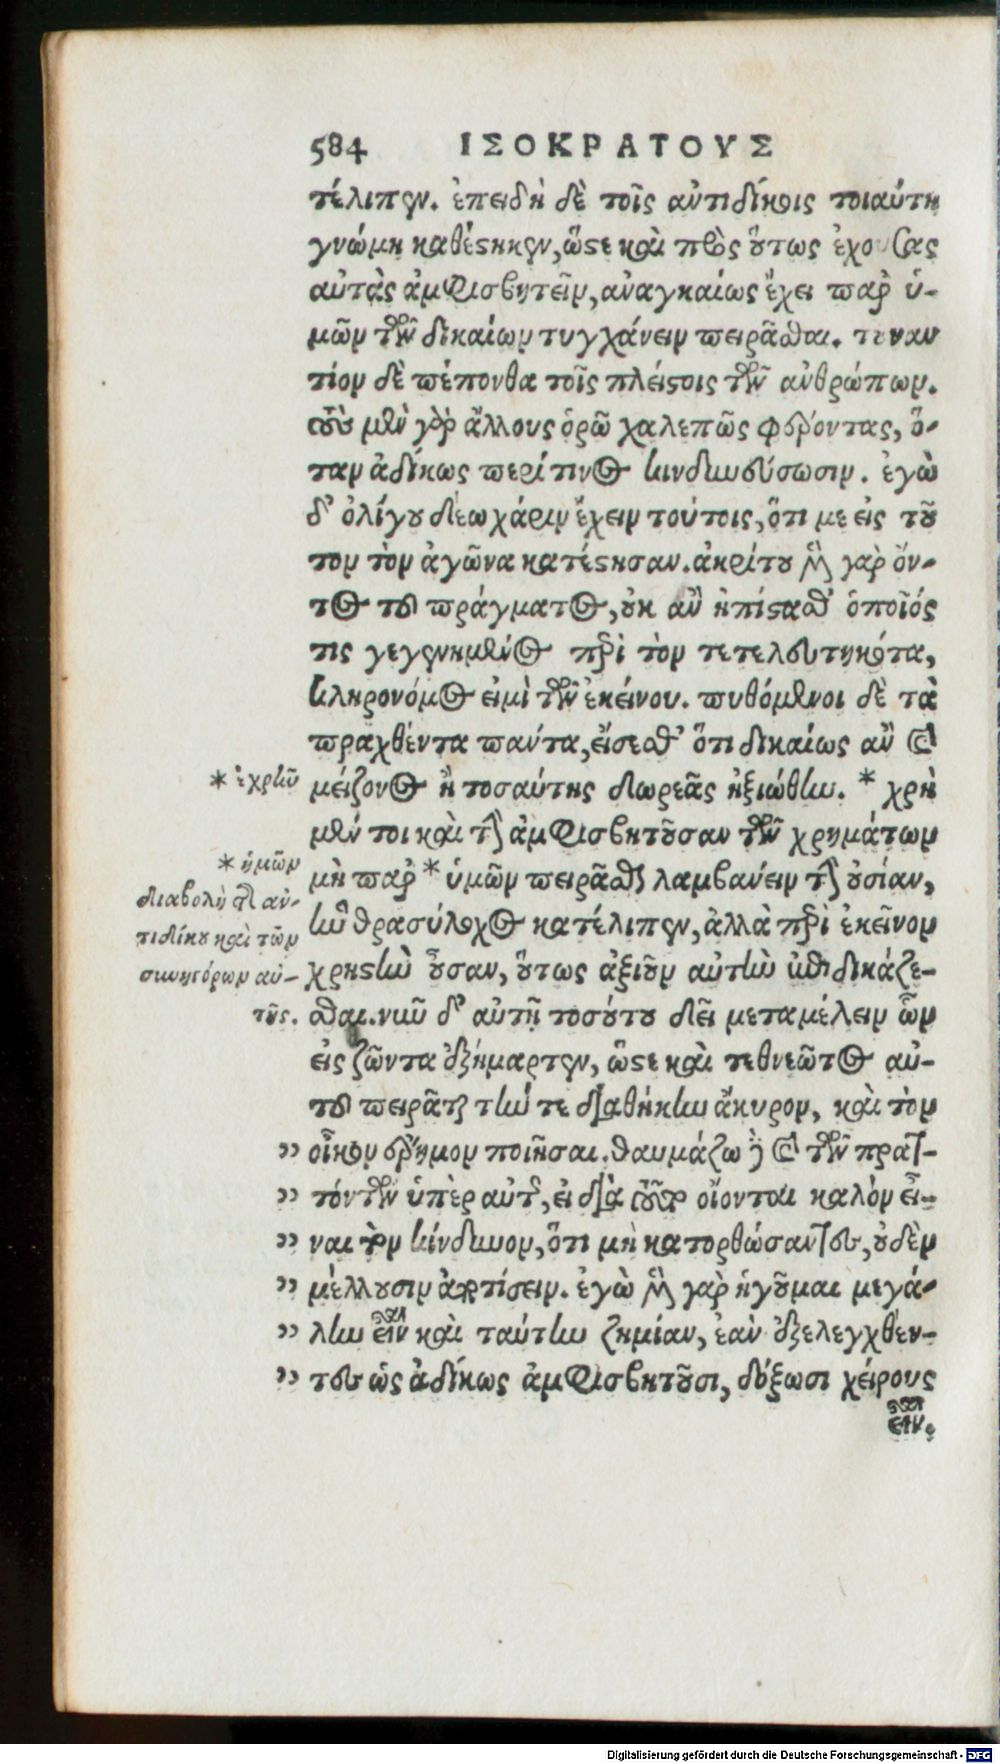 584 ΙΣΟΚΡΑΤΟΥΣ
τέλιπεν. ἐπειδὴ δὲ τοῖς ἀντιδίκοις τοιαύτη
γνώμη καθέστηκεν, ὥστε καὶ πρὸς οὕτως ἐχούσας
αὐτὰς ἀμφισβητεῖν, ἀναγκαίως ἔχει παρ' ὑ-
μῶν τῶν δικαίων τυγχάνειν πειρᾶσθαι. τουναν
τίον δὲ πέπονθα τοῖς πλείστοις τῶν ἀνθρώπων.
τοὺς μὲν γὰρ ἄλλους ὁρῶ χαλεπῶς φέροντας, ὅ-
ταν ἀδίκως περί τινος κινδυνεύσωσιν. ἐγὼ
δ' ὀλίγου δέω χάριν ἔχειν τούτοις, ὅτι με εἰς τοῦ
τον τὸν ἀγῶνα κατέστησαν. ἀκρίτου μὲν γὰρ ὄν-
τος τοῦ πράγματος, οὐκ ἂν ἠπίστασθ' ὁποῖός
τις γεγενημένος περὶ τὸν τετελευτηκότα,
κληρονόμος εἰμὶ τῶν ἐκείνου. πυθόμενοι δὲ τὰ
πραχθέντα πάντα, εἴσεσθ' ὅτι δικαίως ἂν καὶ
* ἐχρῆν
μείζονος ἢ τοσαύτης δωρεᾶς ἠξιώθην. * χρὴ
μέν τοι καὶ τὴν ἀμφισβητοῦσαν τῶν χρημάτων
* ἡμῶν
μὴ παρ' * ὑμῶν πειρᾶσθαι λαμβάνειν τὴν οὐσίαν,
διαβολὴ τοῦ ἀν-
ἣν θρασύλοχος κατέλιπεν, ἀλλὰ περὶ ἐκεῖνον
τιδίκου καὶ τῶν
χρηστὴν οὖσαν, οὕτως ἀξιοῦν αὐτὴν ἐπιδικάζε-
συνηγόρων αὐ-
τῆς.
σθαι. νῦν δ' αὐτῇ τοσούτου δεῖ μεταμέλειν ὧν
εἰς ζῶντα ἐξήμαρτεν, ὥστε καὶ τεθνεῶτος αὐ-
τοῦ πειρᾶται τήν τε διαθήκην ἄκυρον, καὶ τὸν
” οἶκον ἔρημον ποιῆσαι. θαυμάζω δὲ καὶ τῶν πρατ-
” τόντων ὑπὲρ αὐτῆς, εἰ διὰ τοῦτο οἴονται καλὸν εἶ-
” ναι τὸν κίνδυνον, ὅτι μὴ κατορθώσαντες, οὐδὲν
” μέλλουσιν ἀποτίσειν. ἐγὼ μὲν γὰρ ἡγοῦμαι μεγά-
” λην εἶναι καὶ ταύτην ζημίαν, ἐὰν ἐξελεγχθέν-
” τες ὡς ἀδίκως ἀμφισβητοῦσι, δόξωσι χείρους
εἶναι.
Digitalisierung gefördert durch die Deutsche Forschungsgemeinschaft - DFG